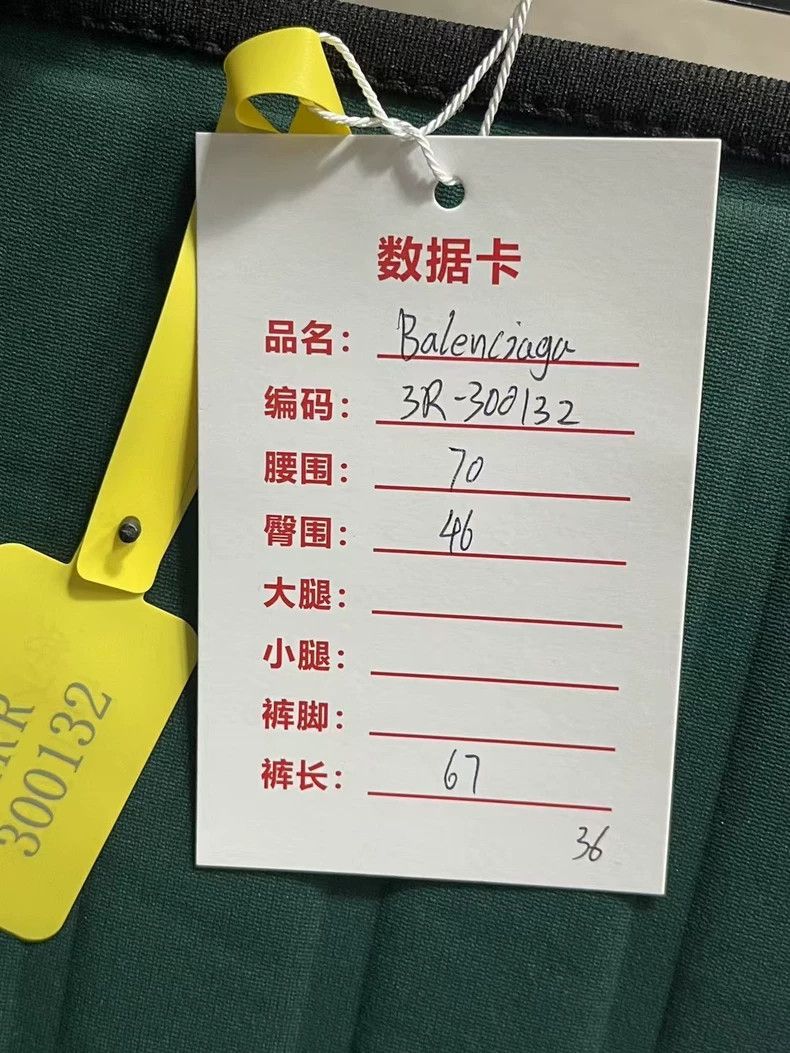 数据卡
品名: Balenciaga
编码: 3R-300132
腰围: 70
臀围: 46
大腿:
小腿:
裤脚:
裤长: 67
36
300132